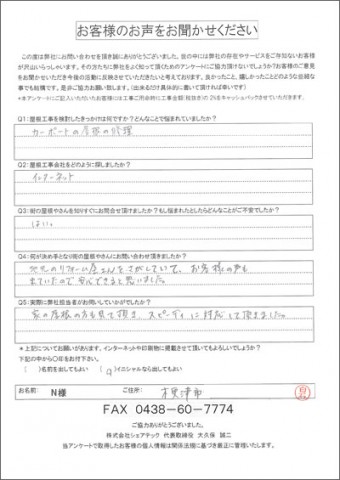 お客様のお声をお聞かせください
この度は弊社にお問い合わせを頂き誠にありがとうございました。世の中には弊社の存在やサービスをご存知ないお客様
が沢山いらっしゃいます。その方たちに弊社をよく知って頂くためのアンケートにご協力頂けないでしょうか?お客様のご意見
をお聞かせいただき今後の活動に反映させていただきたいと考えております。良かったこと、嬉しかったことどのような些細な
事でも結構です。是非ご協力お願い致します。(出来るだけ具体的に書いて頂ければ幸いです)
*本アンケートにご記入いただいたお客様には工事ご用命時に工事金額(税抜き)の2%をキャッシュバックさせていただきます。
Q1:屋根工事を検討したきっかけは何ですか?どんなことで悩まれていましたか?
カーポートの屋根の修理
Q2:屋根工事会社をどのように探しましたか?
インターネット
Q3:街の屋根やさんを知りすぐにお問合せ頂けましたか?もし悩まれたとしたらどんなことがご不安でしたか?
はい。
Q4:何が決め手となり街の屋根やさんにお問い合わせ頂きましたか?
のリフォーム屋さんをさがしていて、お客様の声も
出ていたので安心できると思いました。
Q5:実際に弊社担当者がお伺いしていかがでしたか?
家の屋根の方も見て頂き、スピーディに対応して頂きました。
*上記についてお願いがあります。インターネットや印刷物に掲載させて頂いてもよろしいでしょうか?
下記の中から○印をお付下さい。
( )名前を出してもよい ( ○ )イニシャルなら出してもよい
お名前: N様 ご住所: 木更津市
FAX 0438-60-7774
ご協力ありがとうございました。
株式会社シェアテック 代表取締役 大久保 誠二
当アンケートで取得したお客様の個人情報は関係法規に基づき厳正に管理いたします。